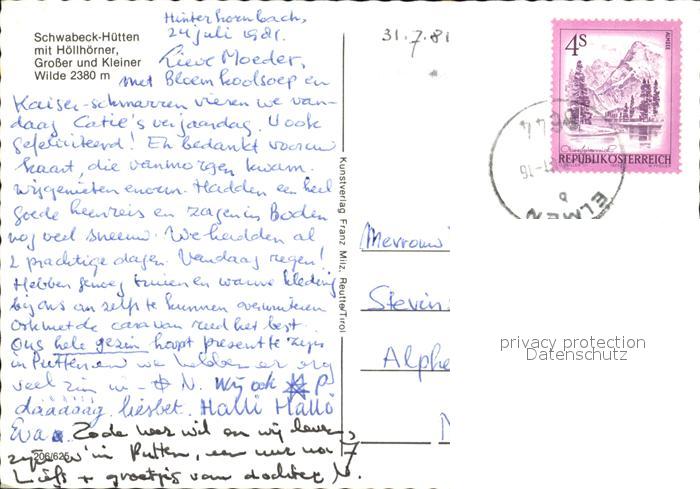 Schwabeck-Hütten
mit Höllhörner,
Großer und Kleiner
Wilde 2380 m
Hinterhornbach,
24 juli 1981.
Lieve Moeder,
Met Bloemkoolsoep en
Kaiser-schmarren vieren we van-
daag Catie's verjaardag. U ook
gefeliciteerd! En bedankt voor uw
kaart, die vanmorgen kwam.
Wij genieten enorm. Hadden een heel
goede heenreis en zagen in Boden
nog veel sneeuw. We hadden al
2 prachtige dagen. Vandaag regen!
Hebben genoeg truien en warme kleding
bij ons om zelfs te kunnen overwinteren
Ook met de caravan reed het best.
Ons hele gezin hoopt present te zijn
in Putten en we hebben er erg
veel zin in - N. Wij ook P
dáááááág. liesbet. Halli Halló
Eva.
zijn in Putten, en
Liefs + groetjes van dochter N.
206/625
Kunstverlag Franz Milz, Reutte/Tirol
31.7.81
4 S
ALMSEE
Oberösterreich
REPUBLIK ÖSTERREICH
6644
-16
b
ELMEN
Mevrouw
Stevin
Alphe
privacy protection
Datenschutz